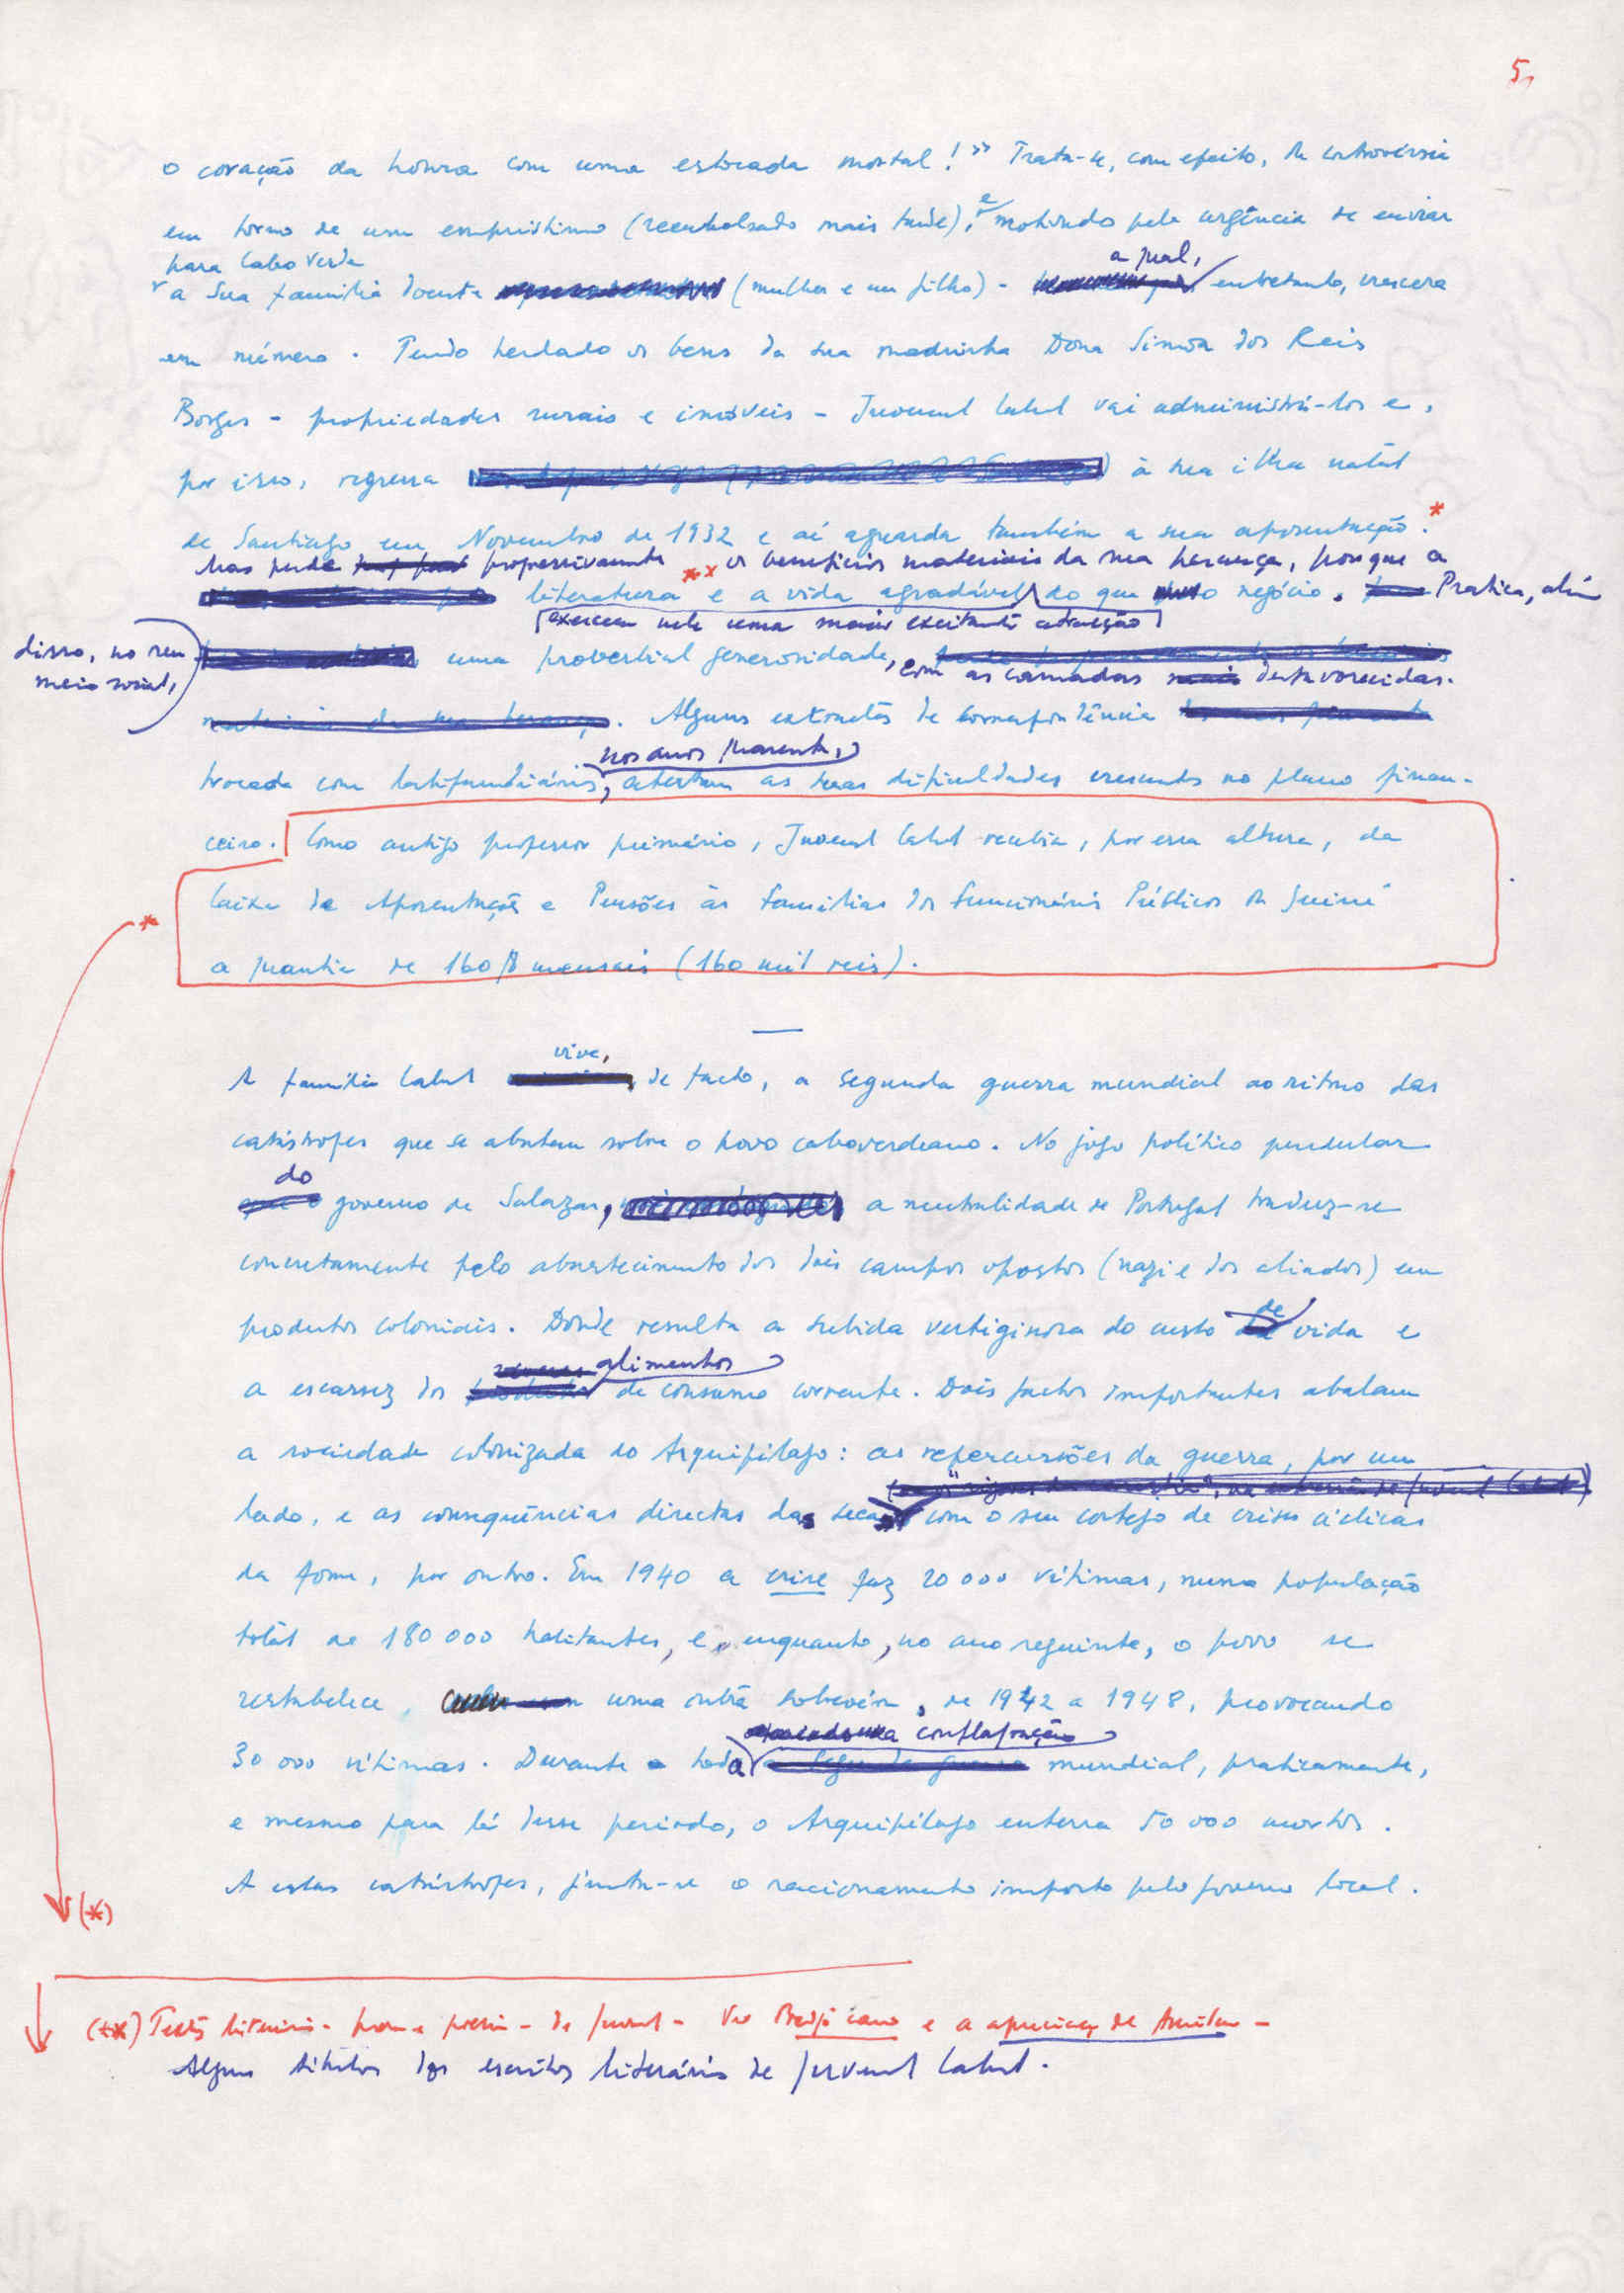 5,
o coração da honra com uma estocada mortal!» Trata-se, com efeito, da controvérsia
em torno de um empréstimo (reembolsado mais tarde), e motivado pela urgência de enviar
para Cabo Verde
a sua família doente (mulher e um filho) - a qual, entretanto, crescera
em número. Tendo herdado os bens da sua madrinha Dona Simoa dos Reis
Borges - propriedades rurais e imóveis - Juvenal Cabral vai administrá-los e,
por isso, regressa à sua ilha natal
de Santiago em Novembro de 1932 e aí aguarda também a sua aposentação. *
Mas perde progressivamente ** os benefícios materiais da sua herança, porque a
literatura e a vida agradável do que o negócio. Pratica, além
(exercem nele uma mais excitante atracção)
disso, no seu
meio social,
uma proverbial generosidade,
com as camadas desfavorecidas.
Alguns extractos de correspondência
nos anos quarenta,
trocada com latifundiários, atestam as suas dificuldades crescentes no plano finan-
ceiro. Como antigo professor primário, Juvenal Cabral recebia, por essa altura, da
Caixa de Aposentação e Pensões às Famílias dos Funcionários Públicos da Guiné
*
a quantia de 160$ mensais (160 mil reis).
vive,
A família Cabral de facto, a segunda guerra mundial ao ritmo das
catástrofes que se abatem sobre o povo caboverdeano. No jogo político pendular
do
governo de Salazar, a neutralidade de Portugal traduz-se
concretamente pelo abastecimento dos dois campos opostos (nazi e dos aliados) em
produtos coloniais. Donde resulta a subida vertiginosa do custo de vida e
alimentos
a escassez dos de consumo corrente. Dois factos importantes abalam
a sociedade colonizada do Arquipélago: as repercussões da guerra, por um
lado, e as consequências directas das secas com o seu cortejo de crises cíclicas
da fome, por outro. Em 1940 a crise faz 20 000 vítimas, numa população
total de 180 000 habitantes, e, enquanto, no ano seguinte, o povo se
restabelece, uma outra sobrevém, de 1942 a 1948, provocando
conflagração
30 000 vítimas. Durante toda a mundial, praticamente,
e mesmo para lá desse período, o Arquipélago enterra 50 000 mortos.
A estas catástrofes, junta-se o racionamento imposto pelo governo local.
(*)
(**) Textos literários - prosa e poesia - de Juvenal - Ver e a apreciação de -
Alguns títulos dos escritos literários de Juvenal Cabral.